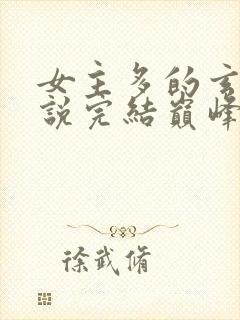 女主多的玄
説完結巔峰
徐武脩